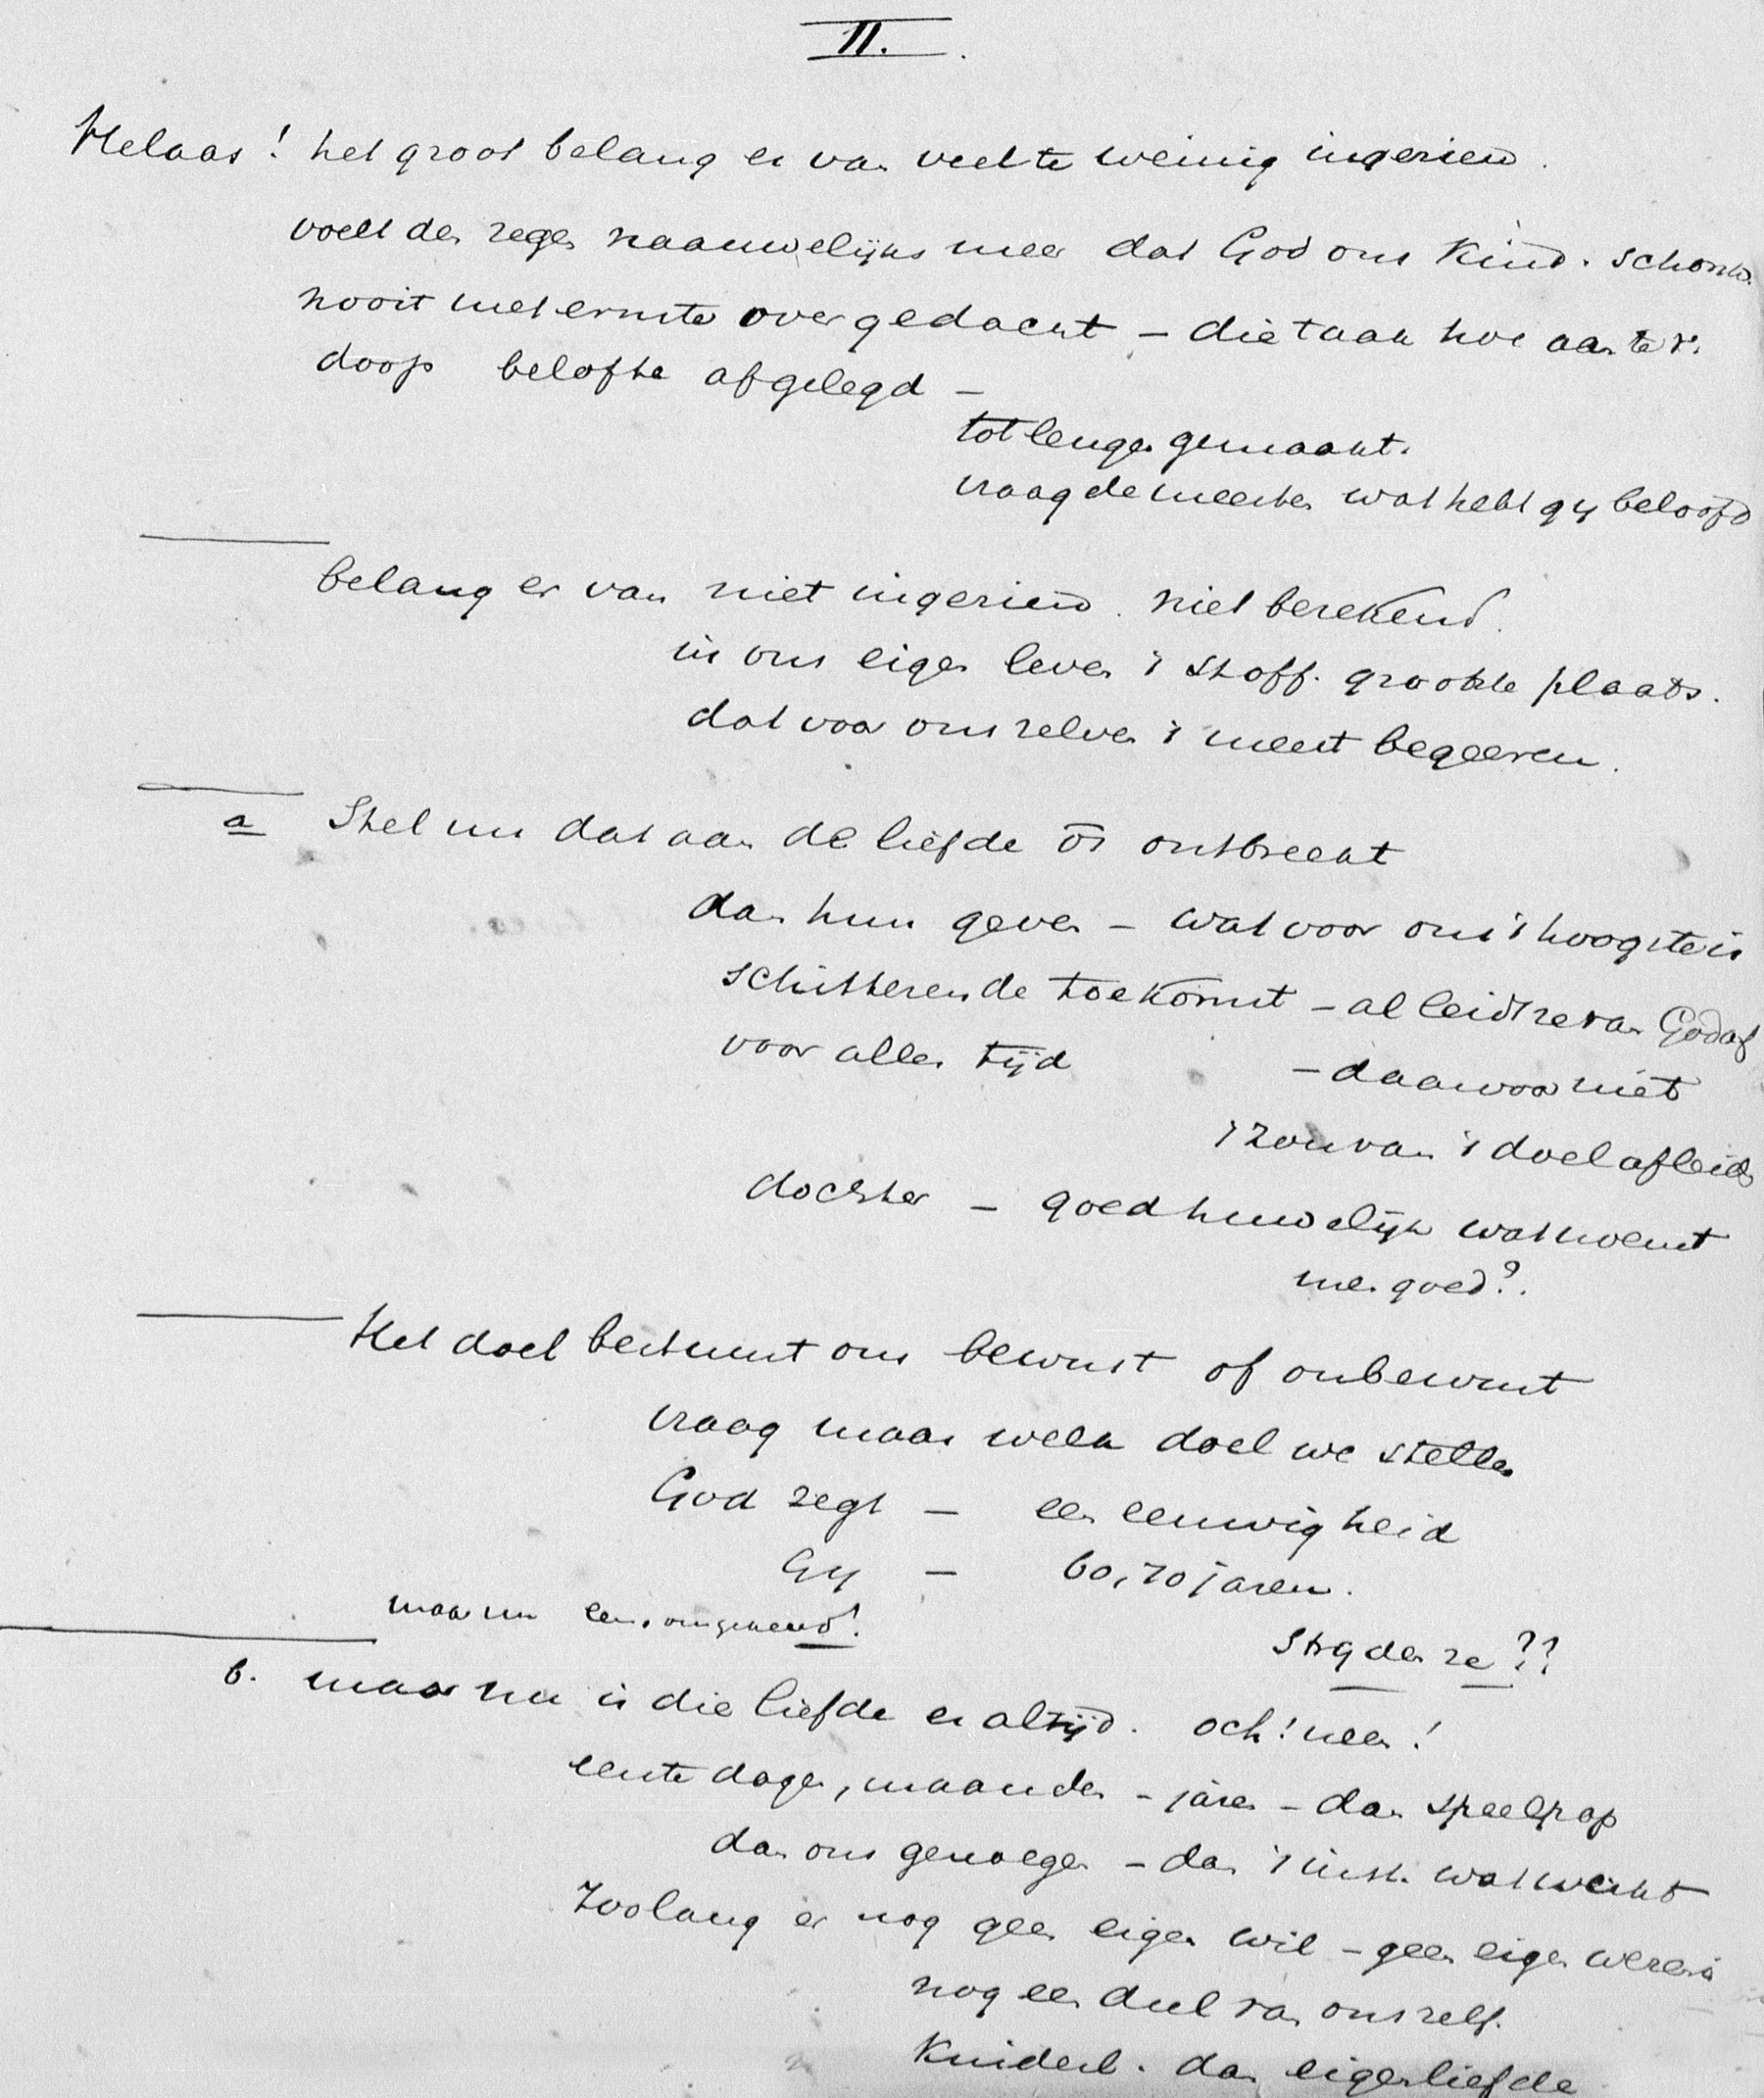 II.
Helaas! het groot belang er van veel te weinig ingezien.
voelt den zegen naauwelijks meer dat God ons kind. schonk.
nooit met ernste over gedacht – die taak hoe aan te v.
doop belofte afgelegd –
tot leugen gemaakt.
vraag de meesten wat hebt gy beloofd
belang er van niet ingezien. niet berekend.
in ons eigen leven 't stoff. grootste plaats.
dat voor ons zelven 't meest begeeren.
a Stel nu dat aan de liefde ontbreekt
dan hun geven – wat voor ons 't hoogste is
schitterende toekomst – al leidt ze van God af
voor allen tijd – daarvoor niet
't zou van 't doel afleiden
dochter – goed huwelijk wat noemt
men goed?.
Het doel bestemt ons bewust of onbewust
vraag maar welk doel we stellen
God zegt – een eeuwigheid
Gy – 60, 70 jaren.
maar nu eens omgekeerd!
Stryden ze??
b. maar nu is die liefde er altijd. och! neen!
eerste dagen, maanden – jaren – dan speelpop
dan ons genoegen – dan 't inst. wat werkt
Zoolang er nog geen eigen wil – geen eigen wezen is
nog een deel van ons zelf.
Kinderl. dan eigenliefde